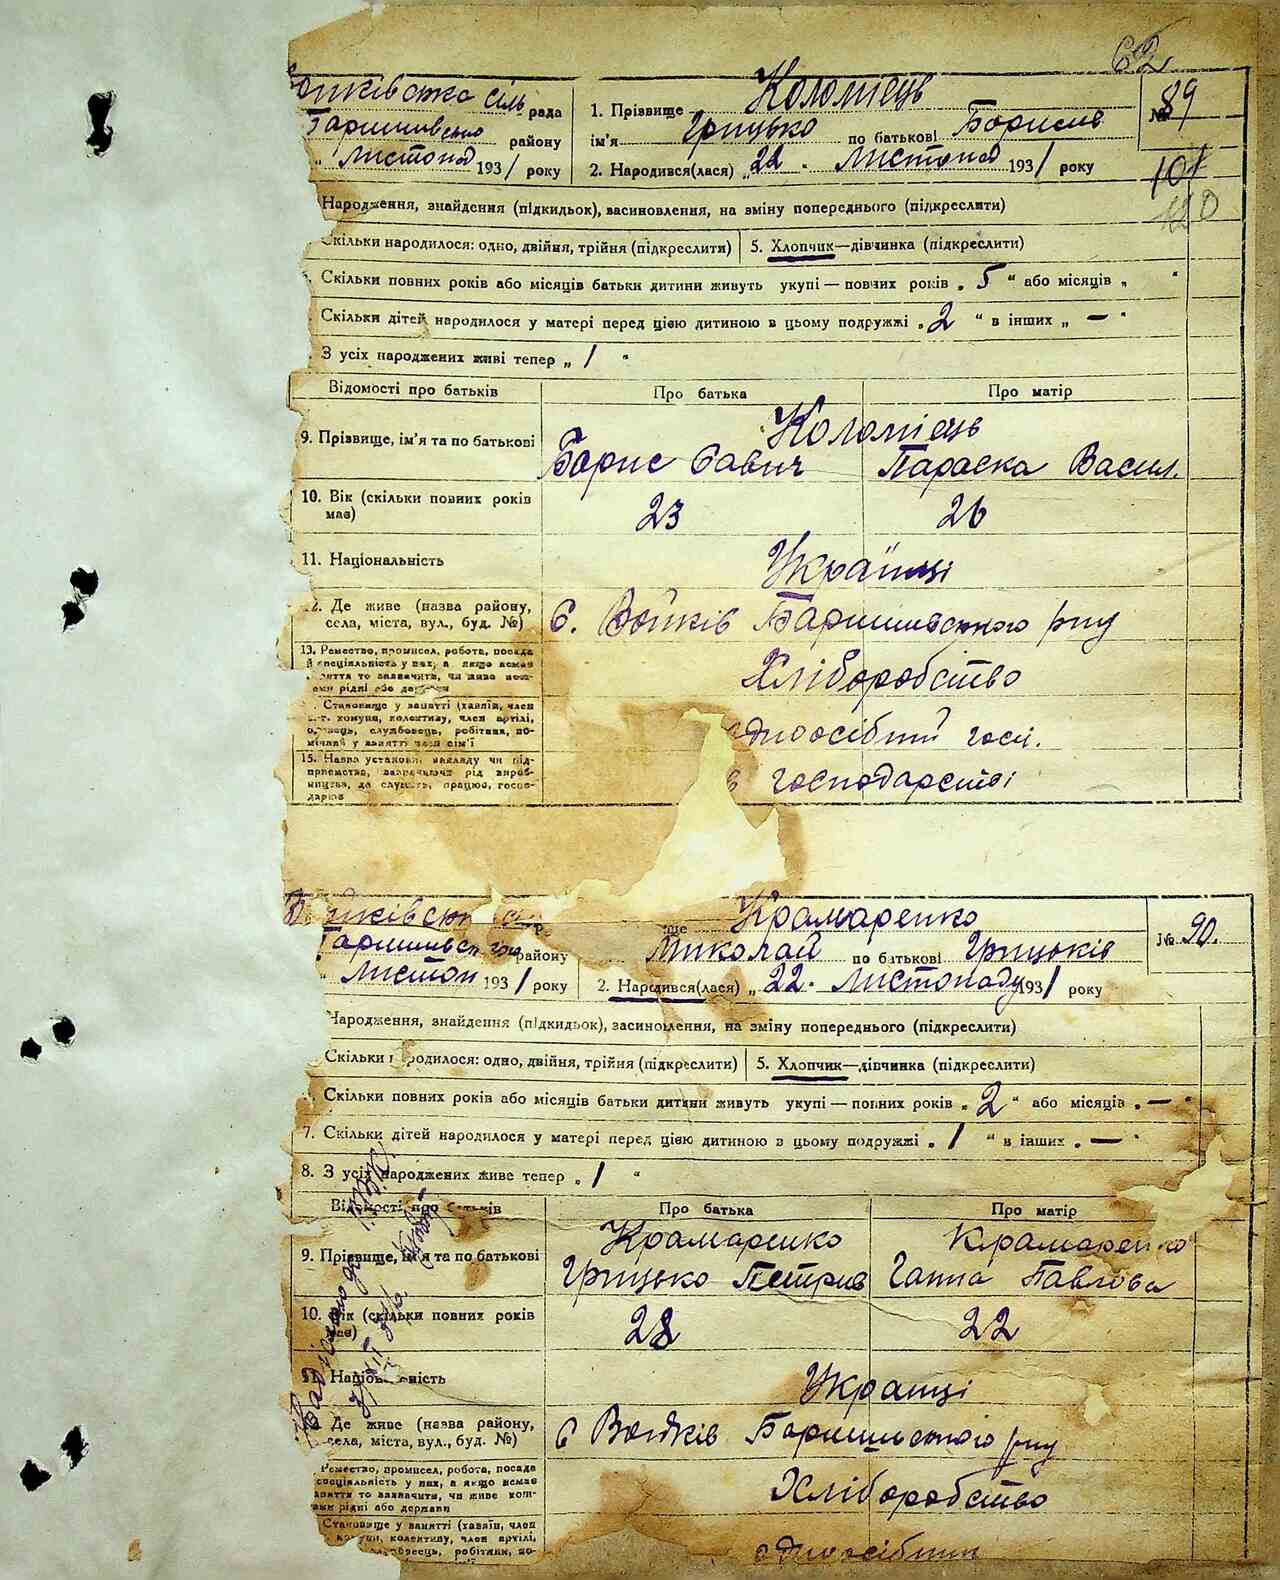 62
Войківська сіль рада
Баришівсько району
" листопад 1931 року
1. Прізвище Коломієць
ім'я Грицько по батькові Борисів
2. Народився(лася) „ 22 . листопад 1931 року
№ 89
101
120
Народження, знайдення (підкидьок), васиновлення, на зміну попереднього (підкреслити)
Скільки народилося: одно, двійня, трійня (підкреслити) 5. Хлопчик—дівчинка (підкреслити)
Скільки повних років або місяців батьки дитини живуть укупі — повних років „ 5 " або місяців „ "
Скільки дітей народилося у матері перед цією дитиною в цьому подружжі „ 2 " в інших „ — "
З усіх народжених живі тепер „ 1 "
Відомості про батьків Про батька Про матір
9. Прізвище, ім'я та по батькові
Коломієць
Борис Савич Параска Васил.
10. Вік (скільки повних років
має) 23 26
11. Національність Українці
12. Де живе (назва району,
села, міста, вул., буд. №) С. Войків Баришівського р-ну
13. Ремество, промисел, робота, посада
й спеціальність у них, а якщо немає
заняття то зазначити, чи живе кош-
ами рідні або держави
Хліборобство
Становище у занятті (хазяїн, член
с.-г. комуни, колективу, член артілі,
службовець, робітник, по-
мічний у занятті член сім'ї
одноосібний госп.
15. Назва установи, закладу чи під-
приємства, зазначаючи рід вироб-
ництва, де служить, працює, госпо-
дарює
в господарстві
Войківськ
Баришівського району
" листопад 1931 року
Крамаренко
Миколай по батькові Грицьків
2. Народився(лася) „ 22 . листопаду 1931 року
№ 90.
Народження, знайдення (підкидьок), васиновлення, на зміну попереднього (підкреслити)
Скільки народилося: одно, двійня, трійня (підкреслити) 5. Хлопчик—дівчинка (підкреслити)
Скільки повних років або місяців батьки дитини живуть укупі — повних років „ 2 " або місяців „ — "
7. Скільки дітей народилося у матері перед цією дитиною в цьому подружжі „ 1 " в інших „ — "
8. З усіх народжених живе тепер „ 1 "
Відомості про батьків Про батька Про матір
9. Прізвище, ім'я та по батькові
Крамаренко Крамаренко
Грицько Петрів Ганна Павлова
10. Вік (скільки повних років
має) 28 22
11. Національність Українці
Де живе (назва району,
села, міста, вул., буд. №) С Войків Баришівського р-ну
Ремество, промисел, робота, посада
спеціальність у них, а якщо немає
заняття то зазначити, чи живе кош-
ами рідні або держави
Хліборобство
Становище у занятті (хазяїн, член
комуни, колективу, член артілі,
службовець, робітник, по-
одноосібник